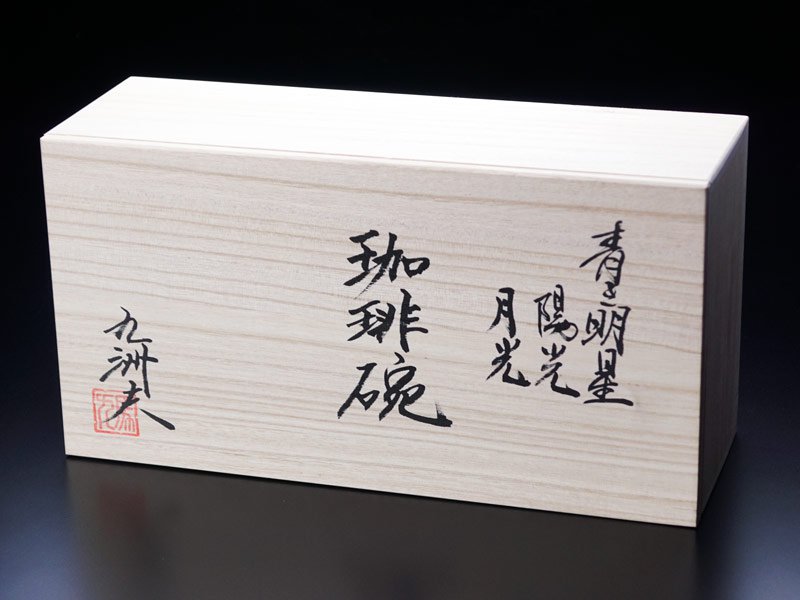 青 明星
陽光
月光
珈琲碗
九洲夫